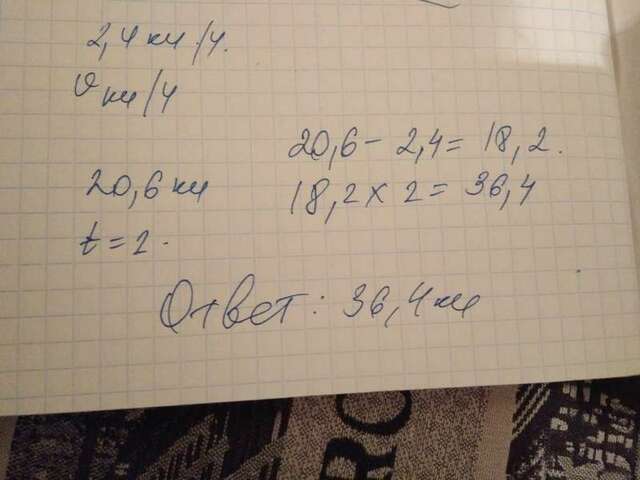 2,4 км/ч.
υ км/ч
20,6 км
t = 2.
20,6 - 2,4 = 18,2.
18,2 x 2 = 36,4
Ответ: 36,4 км
RO